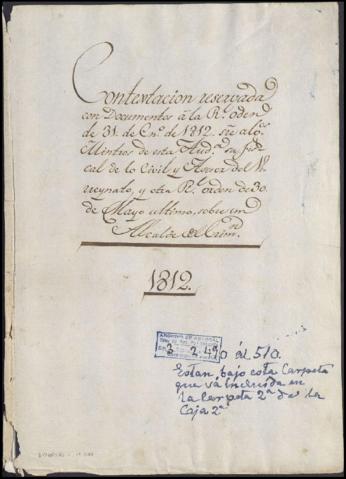 Contextacion reservada
con Documentos á la Rl. orden
de 31. de Eno. de 1812. sre. alos
Mintros de esta Audª. su fis
cal de lo Civil y Asesor del Vi
rreynato, y otra Rl. orden de 30.
de Mayo ultimo, sobre un
Alcalde del Crimn.
1812.
3 - 2. 49
0 ál 510.
Estan bajo esta Carpeta
que vá incluida en
la Carpeta 2ª de la
Caja 2ª